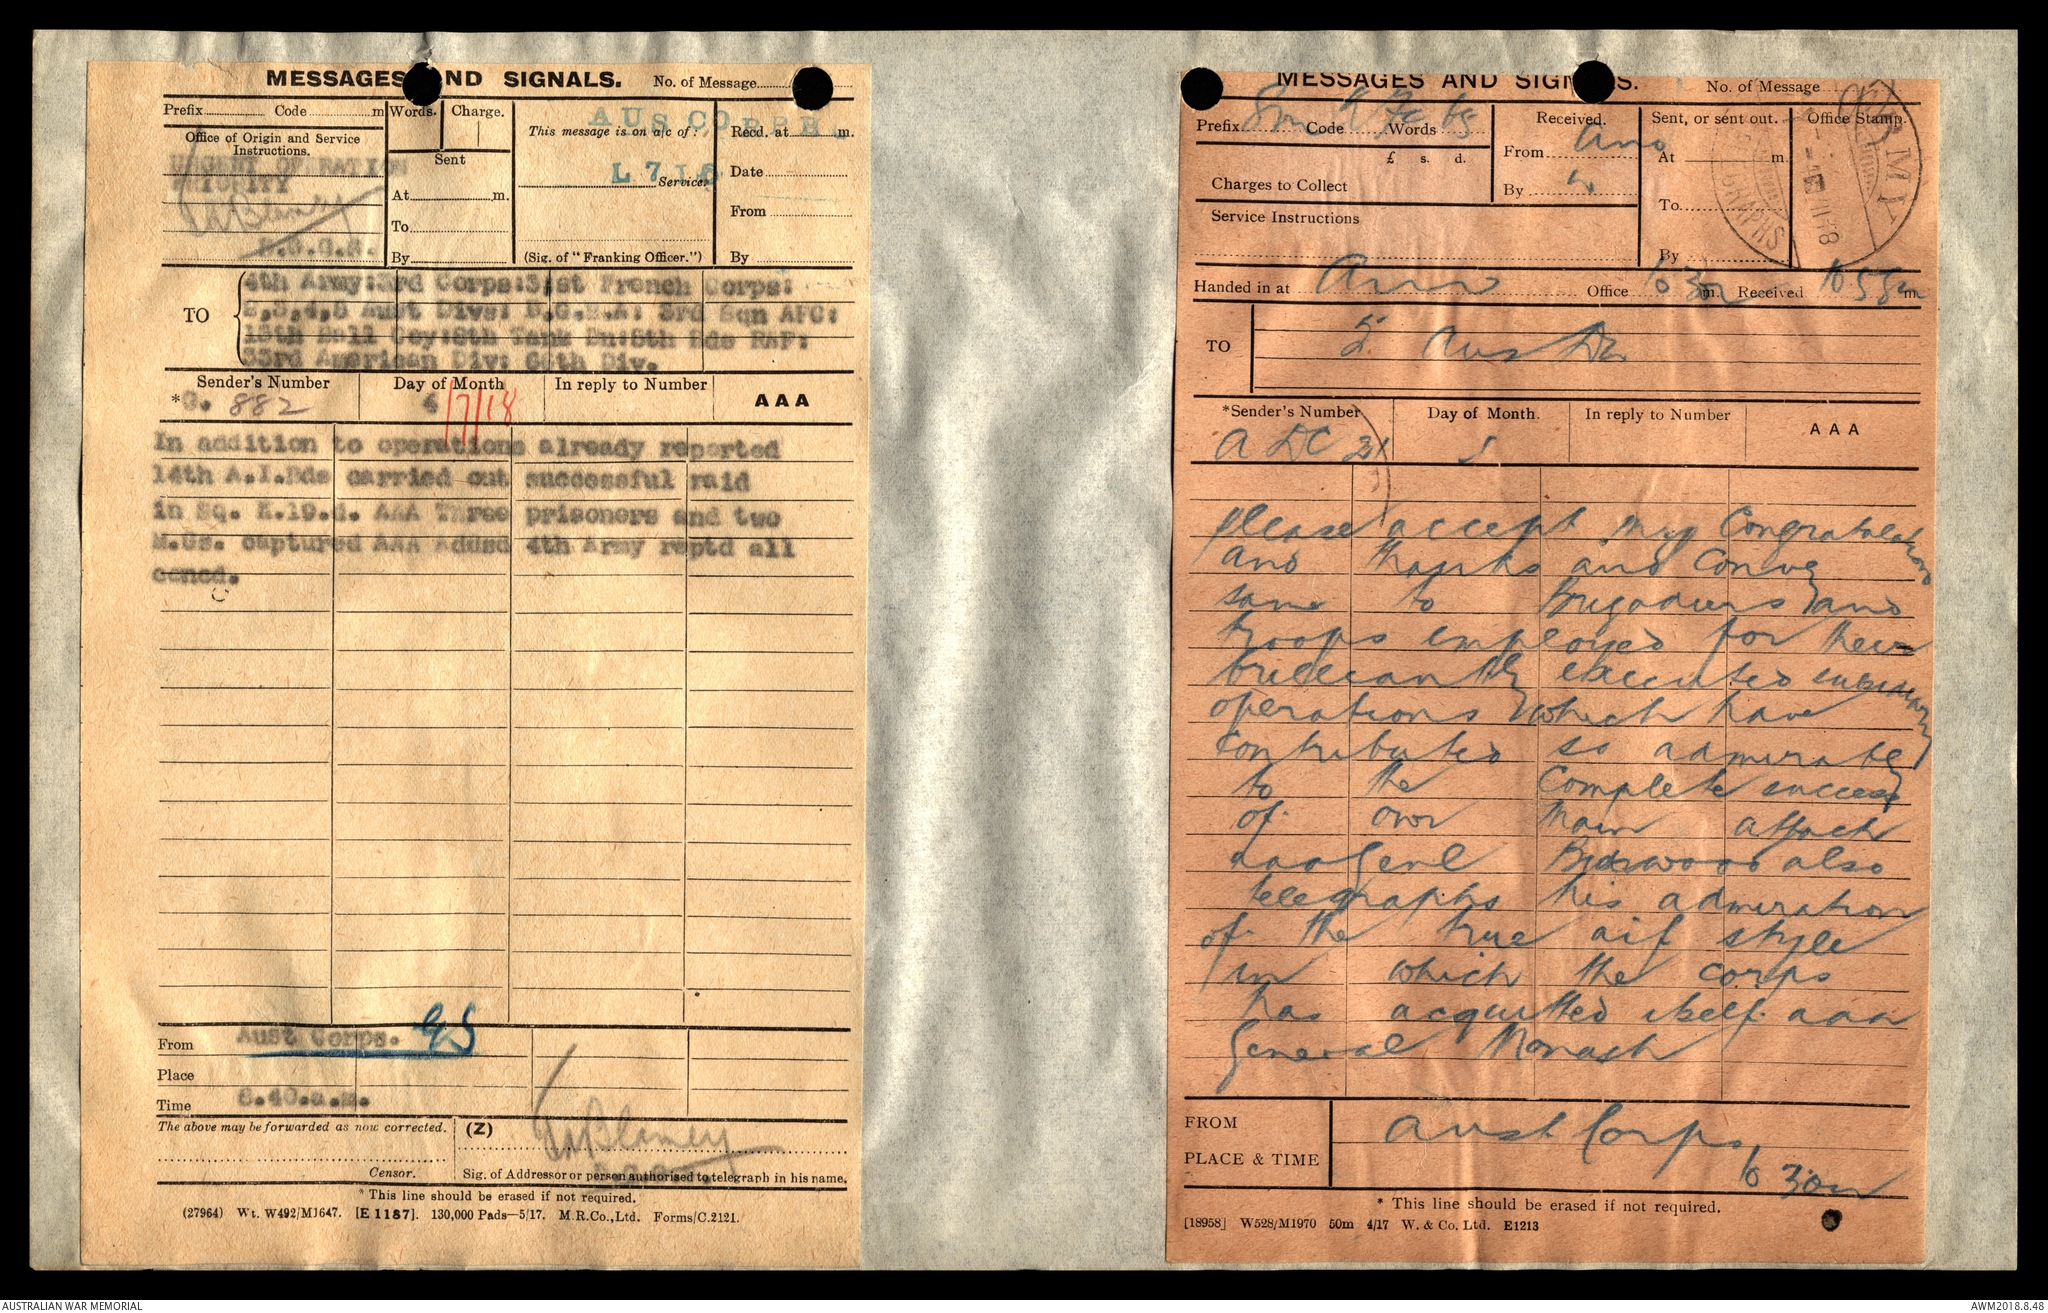 MESSAGES AND SIGNALS. No. of Message
Prefix Code m Words. Charge.
This message is on a/c of:
AUSCORPS
Recd. at m.
Office of Origin and Service
Instructions.
Sent
URGENT OPERATION
PRIORITY
L 7
Service.
Date
At m.
TWBlamey
From
To
B.G.G.S.
By
(Sig. of "Franking Officer.")
By
TO
4th Army:3rd Corps:31st French Corps:
2,3,4,5 Aust Divs: B.G.R.A: 3rd Sqn AFC:
13th Ball Coy:8th Tank Bn:5th Bde RAF:
33rd American Div: 66th Div.
Sender's Number Day of Month In reply to Number
*G. 882 4/7/18 AAA
In addition to operations already reported
14th A.I.Bde carried out successful raid
in Sq. K.19.d. AAA Three prisoners and two
M.Gs. captured AAA Addsd 4th Army reptd all
concd.
From Aust Corps. GS
Place
Time 8.40.a.m.
The above may be forwarded as now corrected. (Z) TWBlamey
Censor. Sig. of Addressor or person authorised to telegraph in his name.
* This line should be erased if not required.
(27964) Wt. W492/M1647. [E 1187]. 130,000 Pads—5/17. M.R.Co.,Ltd. Forms/C.2121.
MESSAGES AND SIGNALS. No. of Message
Prefix Code Words
Received. Sent, or sent out. Office Stamp.
£ s. d.
From
At m.
Charges to Collect
By
To
Service Instructions
By
ARMY
Handed in at Office 6 30 m. Received 6 55 m.
TO 5 Aust Div
*Sender's Number Day of Month. In reply to Number
ADC 31 5 AAA
please accept my Congratulations
and thanks and convey
same to Brigadiers and
troops employed for their
brilliantly executed subsidiary
operations which have
contributed so admirably
to the Complete success
of our main attack
aaa Genl Birdwood also
telegraphs his admiration
of the true aif style
in which the corps
has acquitted itself aaa
General Monash
FROM Aust Corps
PLACE & TIME 6 30
* This line should be erased if not required.
[18958] W528/M1970 50m 4/17 W. & Co. Ltd. E1213
AUSTRALIAN WAR MEMORIAL
AWM2018.8.48